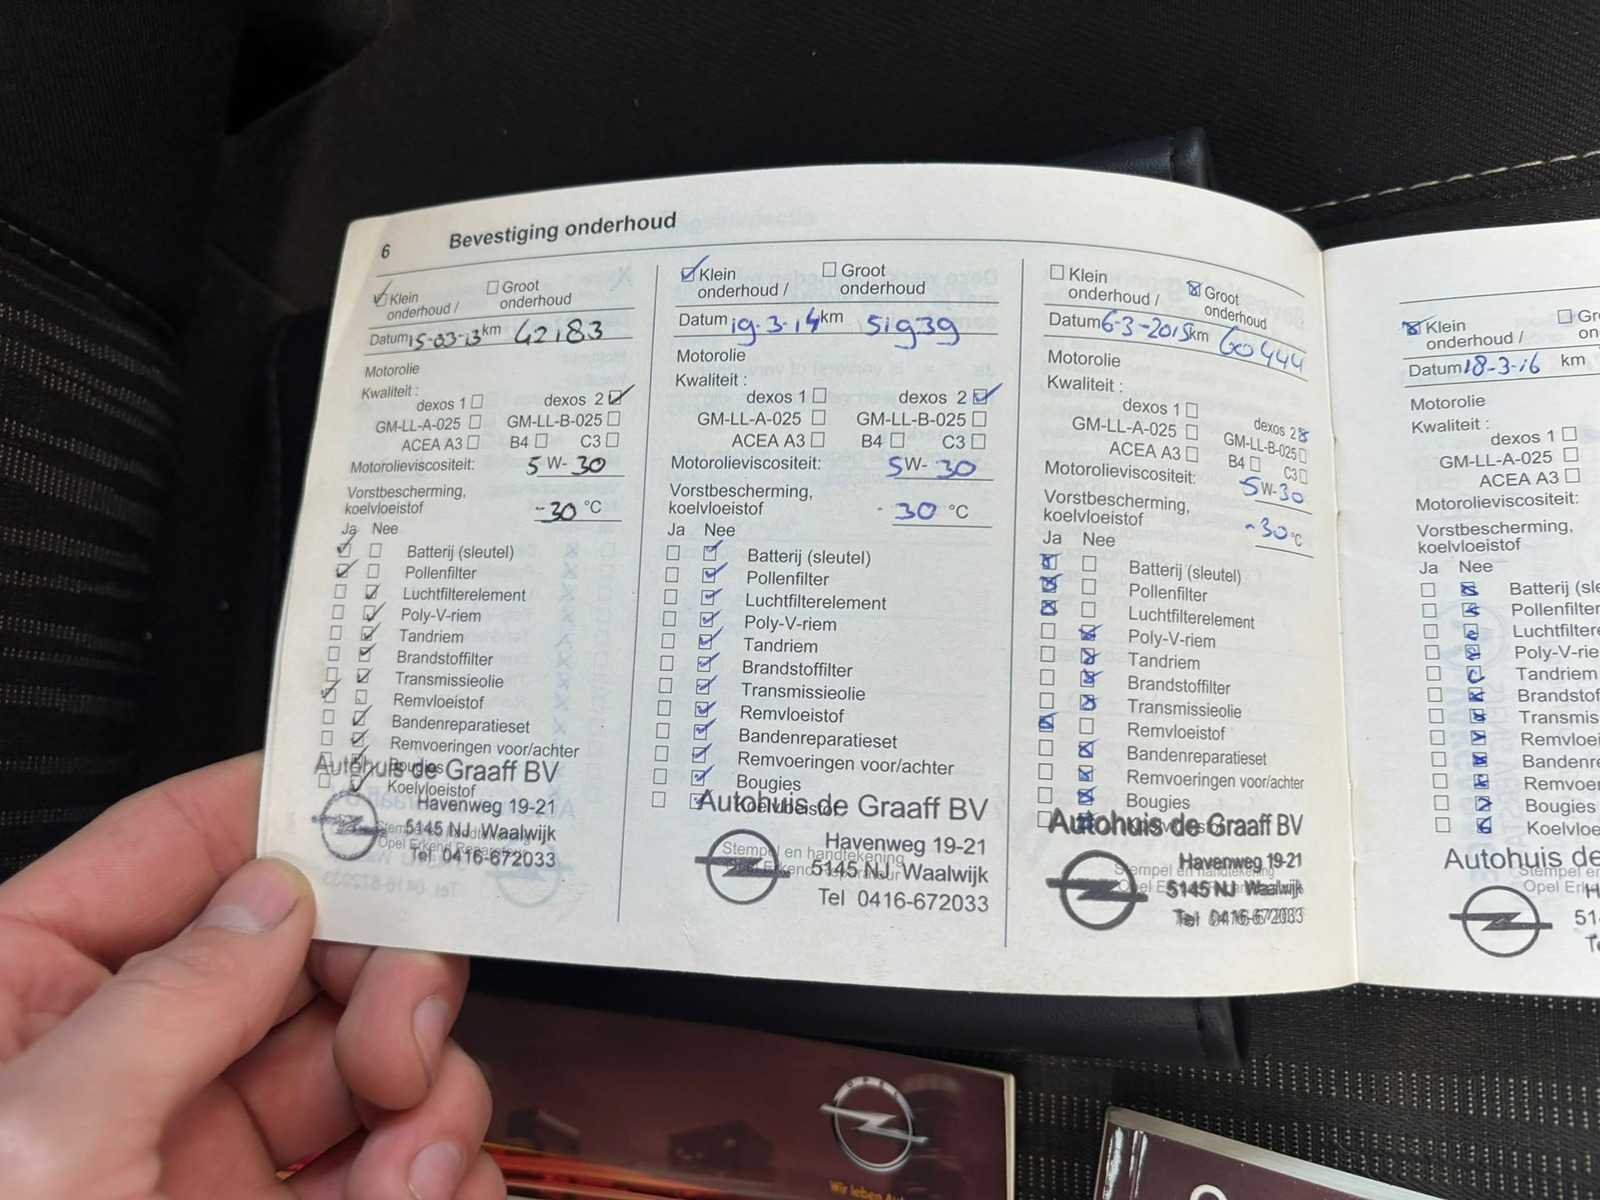 6 Bevestiging onderhoud
Klein onderhoud / Groot onderhoud
Datum 15-03-13 km 42183
Motorolie
Kwaliteit :
dexos 1 dexos 2
GM-LL-A-025 GM-LL-B-025
ACEA A3 B4 C3
Motorolieviscositeit: 5 W- 30
Vorstbescherming,
koelvloeistof -30 °C
Ja Nee
Batterij (sleutel)
Pollenfilter
Luchtfilterelement
Poly-V-riem
Tandriem
Brandstoffilter
Transmissieolie
Remvloeistof
Bandenreparatieset
Remvoeringen voor/achter
Bougies
Koelvloeistof
Autohuis de Graaff BV
Havenweg 19-21
5145 NJ Waalwijk
Tel 0416-672033
Stempel en handtekening
Opel Erkend Reparateur
Klein onderhoud / Groot onderhoud
Datum 19-3-14 km 51939
Motorolie
Kwaliteit :
dexos 1 dexos 2
GM-LL-A-025 GM-LL-B-025
ACEA A3 B4 C3
Motorolieviscositeit: 5 W- 30
Vorstbescherming,
koelvloeistof - 30 °C
Ja Nee
Batterij (sleutel)
Pollenfilter
Luchtfilterelement
Poly-V-riem
Tandriem
Brandstoffilter
Transmissieolie
Remvloeistof
Bandenreparatieset
Remvoeringen voor/achter
Bougies
Koelvloeistof
Autohuis de Graaff BV
Havenweg 19-21
5145 NJ Waalwijk
Tel 0416-672033
Stempel en handtekening
Opel Erkend Reparateur
Klein onderhoud / Groot onderhoud
Datum 6-3-2015 km 60444
Motorolie
Kwaliteit :
dexos 1 dexos 2
GM-LL-A-025 GM-LL-B-025
ACEA A3 B4 C3
Motorolieviscositeit: 5 W- 30
Vorstbescherming,
koelvloeistof -30 °C
Ja Nee
Batterij (sleutel)
Pollenfilter
Luchtfilterelement
Poly-V-riem
Tandriem
Brandstoffilter
Transmissieolie
Remvloeistof
Bandenreparatieset
Remvoeringen voor/achter
Bougies
Autohuis de Graaff BV
Havenweg 19-21
5145 NJ Waalwijk
Tel 0416-672033
Stempel en handtekening
Opel Erkend Reparateur
Klein onderhoud / Gro
Datum 18-3-16 km
Motorolie
Kwaliteit :
dexos 1
GM-LL-A-025
ACEA A3
Motorolieviscositeit:
Vorstbescherming,
koelvloeistof
Ja Nee
Batterij (sle
Pollenfilter
Luchtfiltere
Poly-V-rie
Tandriem
Brandstof
Transmis
Remvloei
Bandenre
Remvoer
Bougies
Koelvloe
Autohuis de
Stempel en
Opel Erke
51
OPEL
Wir leben Au